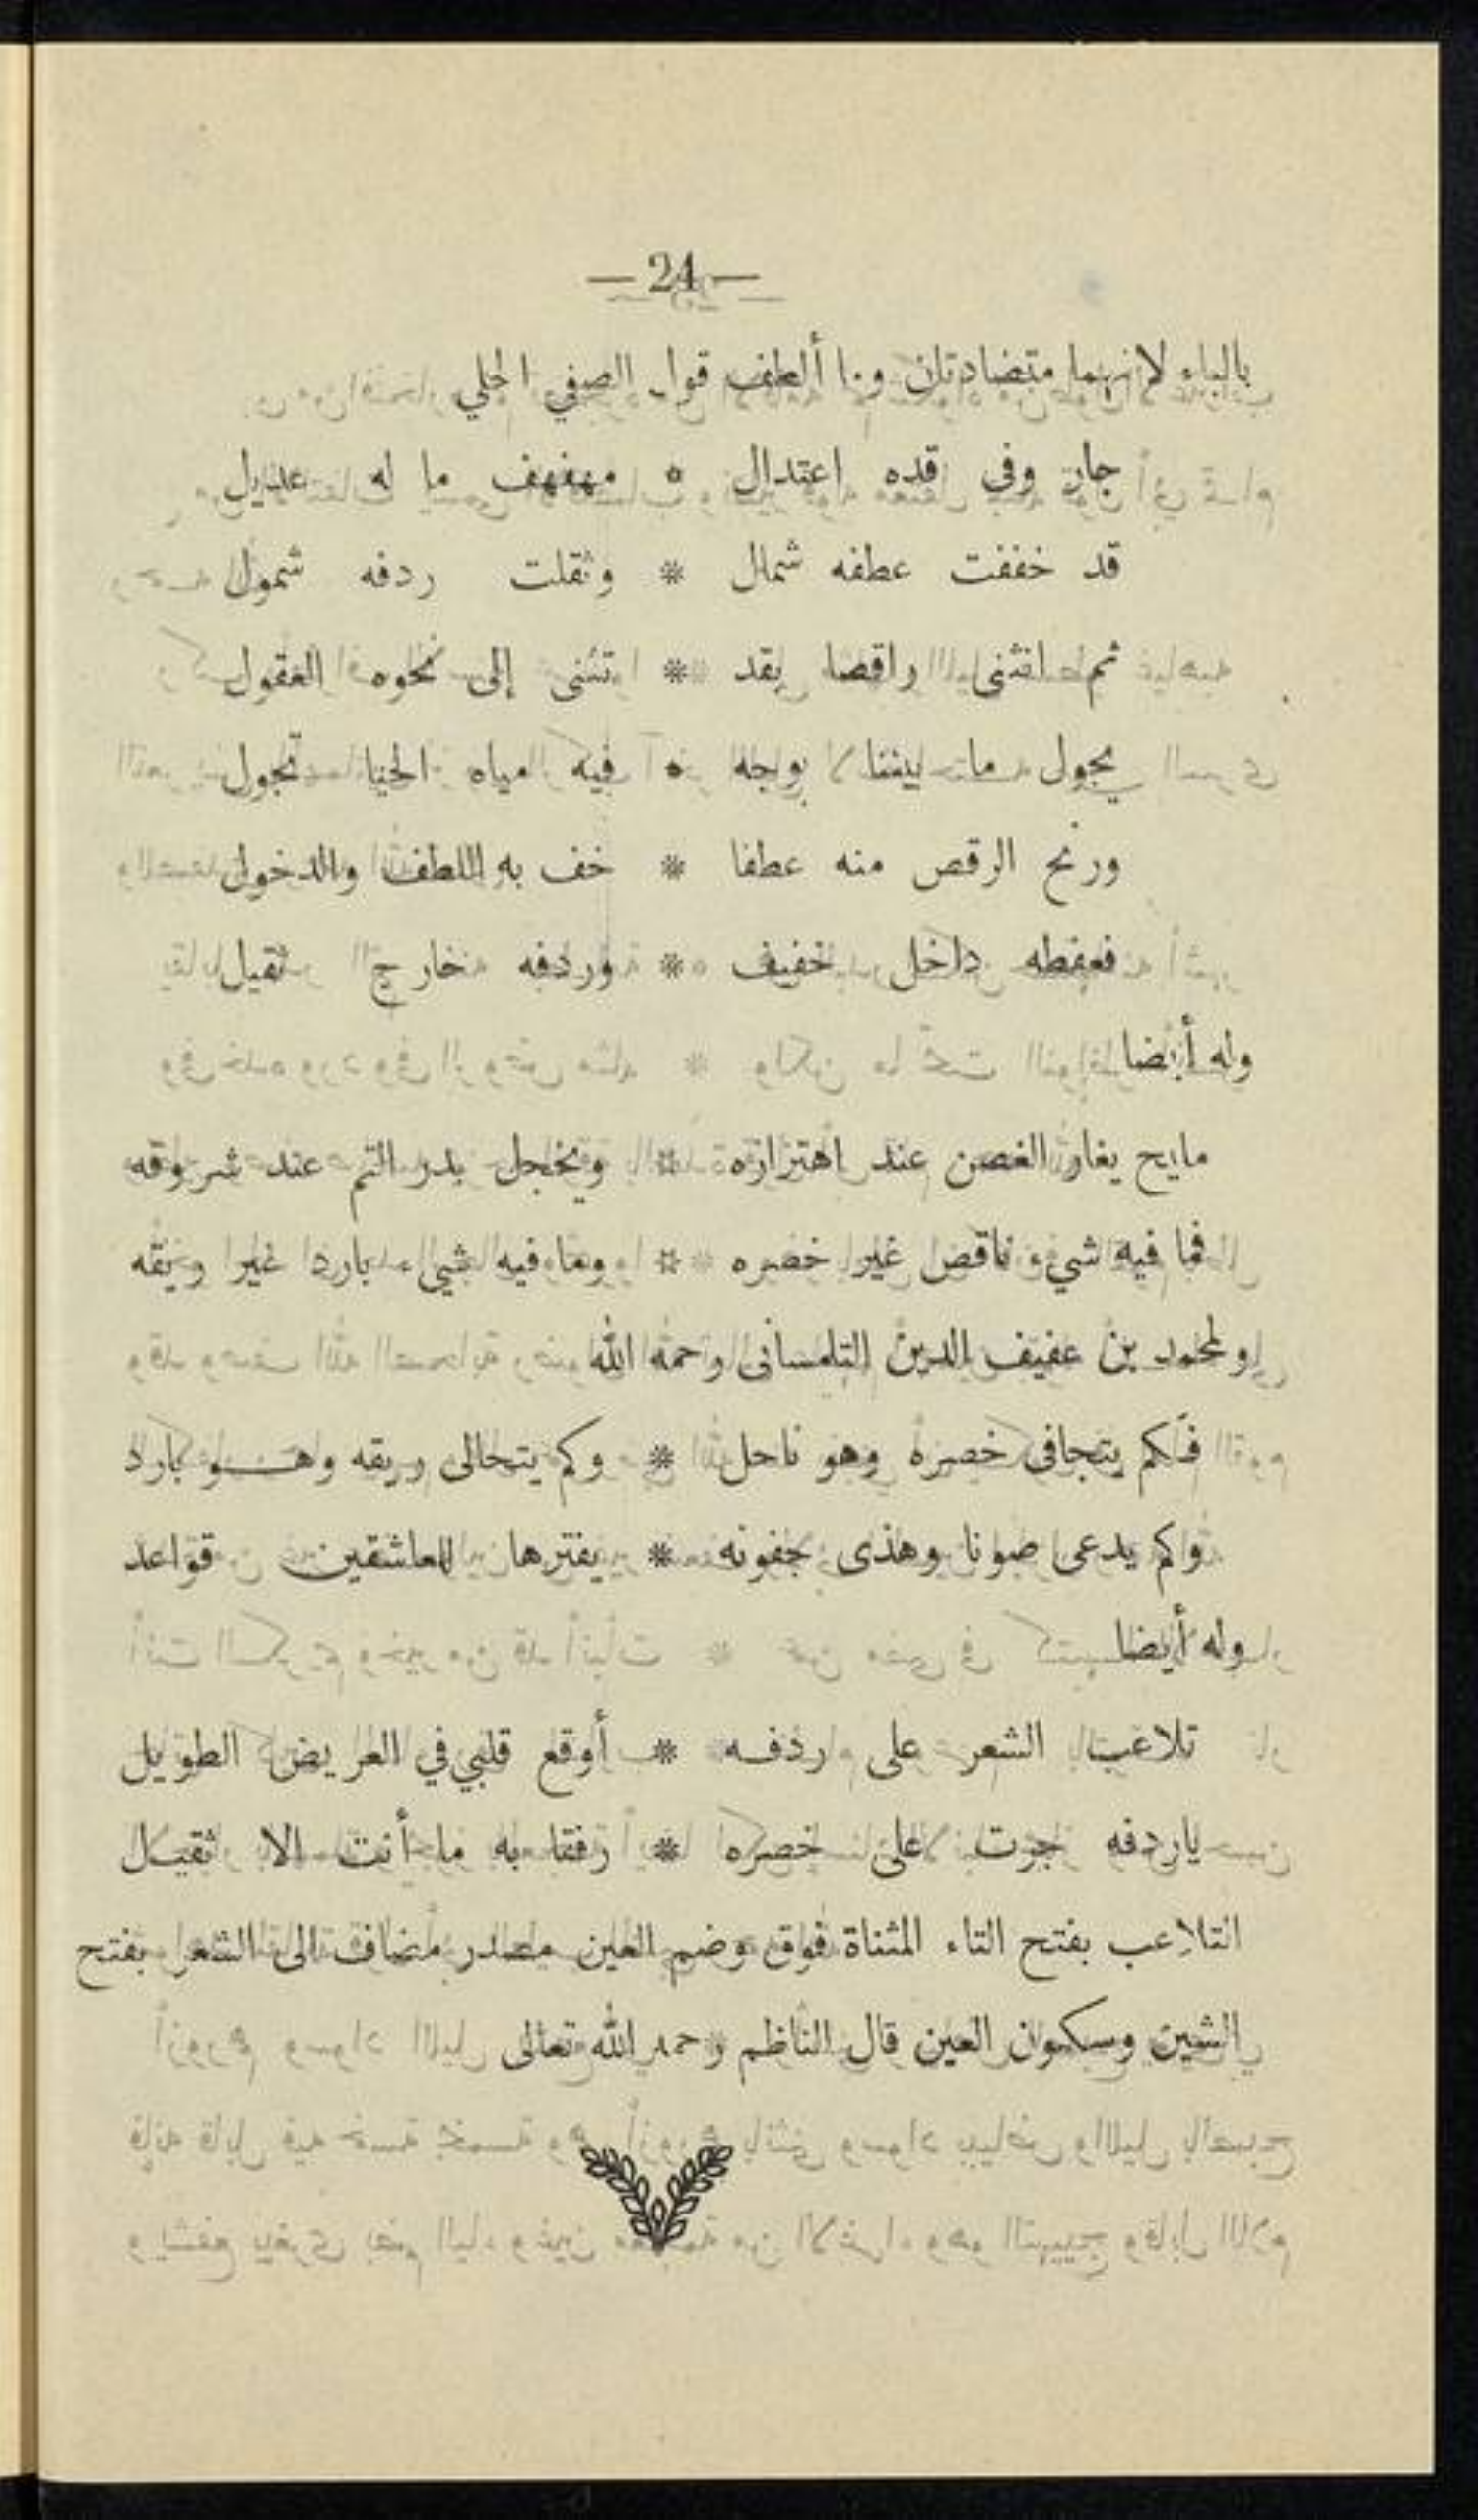 — 24 —
بالباء لانهما متضادتان وما ألطف قول الصفي الحلي
جار وفي قده اعتدال * مهفهف ما له عديل
قد خففت عطفه شمال * وثقلت ردفه شمول
ثم انثنى راقصا بقد * تثنى إلى نحوه العقول
يجول ما بيننا بوجه * فيه مياه الحيا تجول
ورنح الرقص منه عطفا * خف به اللطف والدخول
فعطفه داخل خفيف * وردفه خارج ثقيل
وله أيضا
مليح يغار الغصن عند اهتزازه * ويخجل بدر التم عند شروقه
فما فيه شيء ناقص غير خصره * وما فيه شيء بارد غير ريقه
ولمحمد بن عفيف الدين التلمسانى رحمه الله
فكم يتجافى خصره وهو ناحل * وكم يتحالى ريقه وهو بارد
وكم يدعى صونا وهذى جفونه * بفترها للعاشقين قواعد
وله أيضا
تلاعب الشعر على ردفه * أوقع قلبي في العريض الطويل
ياردفه جرت على خصره * رفقا به ما أنت الا ثقيل
التلاعب بفتح التاء المثناة فوق وضم العين مصدر مضاف الى الشعر بفتح
الشين وسكون العين قال الناظم رحمه الله تعالى